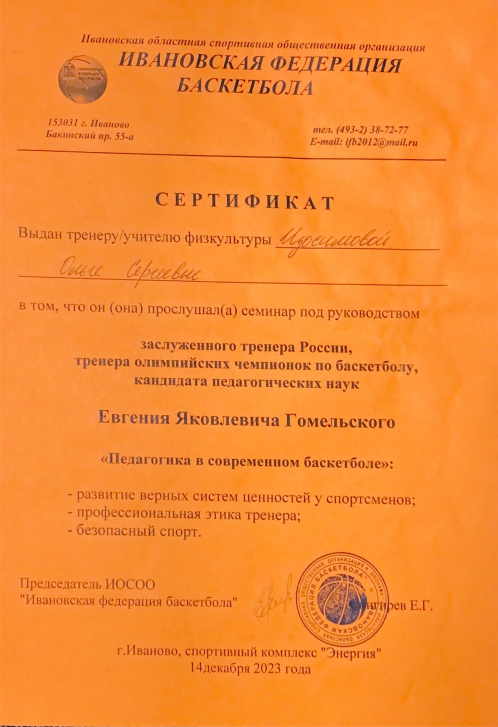 Ивановская областная спортивная общественная организация
ИВАНОВСКАЯ ФЕДЕРАЦИЯ
БАСКЕТБОЛА
153031 г. Иваново
Бакинский пр. 55-а
тел. (493-2) 38-72-77
E-mail: ifb2012@mail.ru
СЕРТИФИКАТ
Выдан тренеру/учителю физкультуры
Ольге Сергеевне
в том, что он (она) прослушал(а) семинар под руководством
заслуженного тренера России,
тренера олимпийских чемпионок по баскетболу,
кандидата педагогических наук
Евгения Яковлевича Гомельского
«Педагогика в современном баскетболе»:
- развитие верных систем ценностей у спортсменов;
- профессиональная этика тренера;
- безопасный спорт.
Председатель ИОСОО
"Ивановская федерация баскетбола"
Е.Г.
г.Иваново, спортивный комплекс "Энергия"
14декабря 2023 года